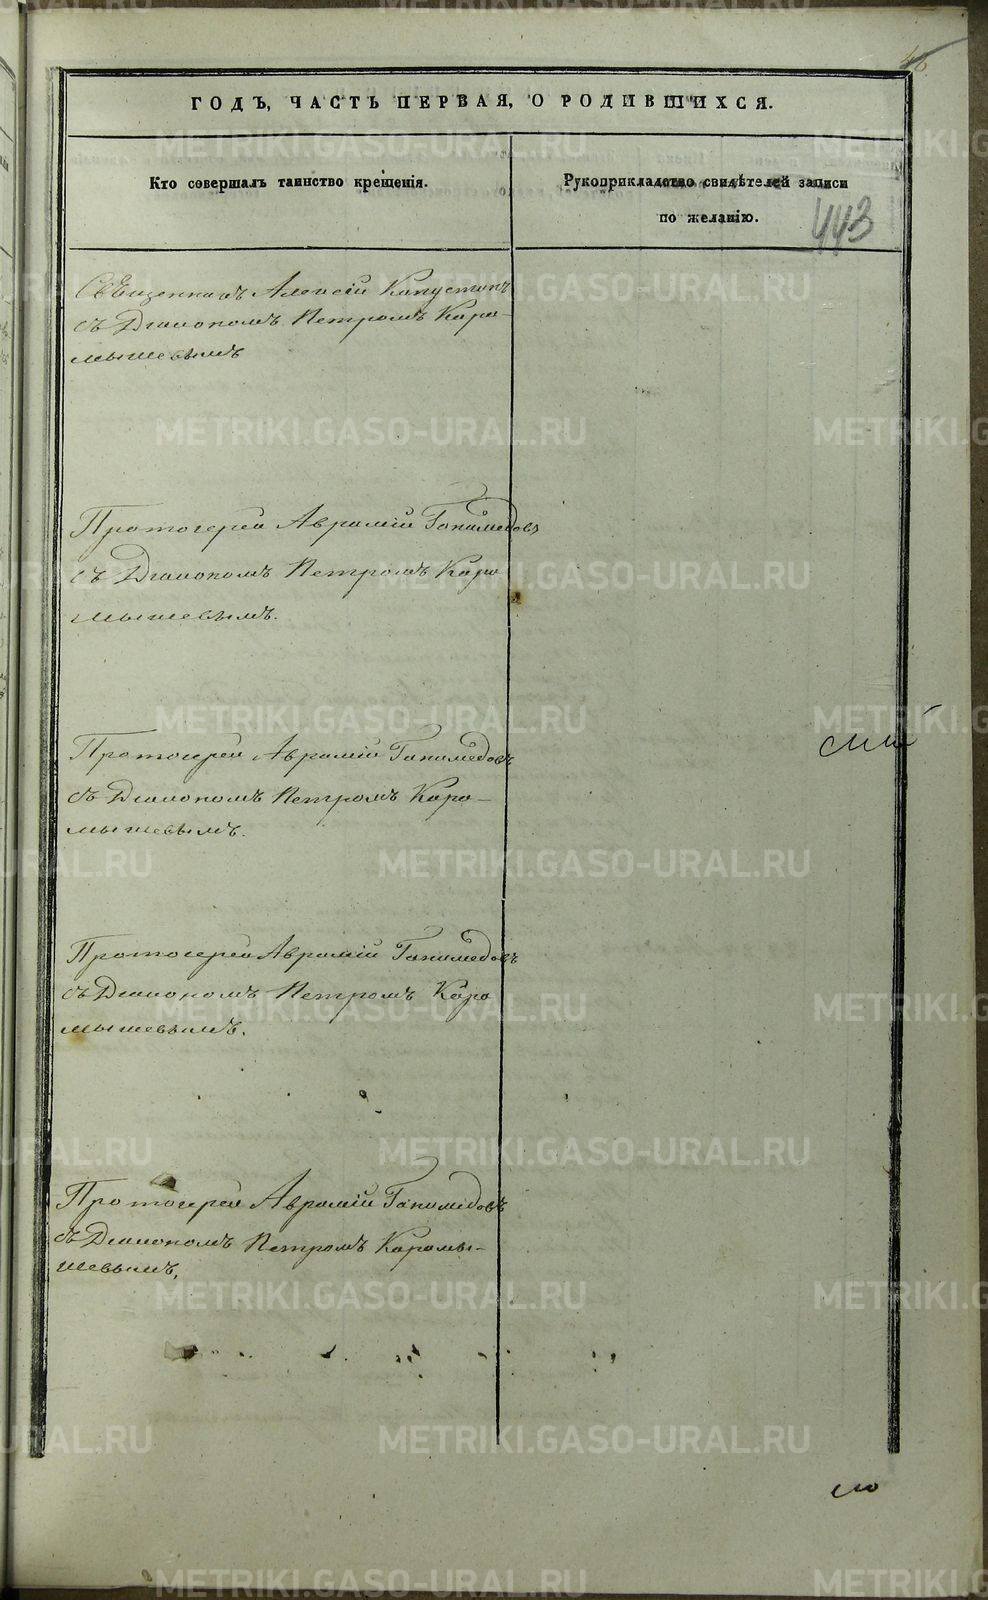 ГОДЪ, ЧАСТЬ ПЕРВАЯ, О РОДИВШИХСЯ.
Кто совершалъ таинство крещенія.
Рукоприкладство свидѣтелей записи
по желанію.
443
Священникъ Алексій Капустинъ
съ Діакономъ Петромъ Кара-
мышевымъ
Протоіерей Аврамій Ганимедовъ
съ Діакономъ Петромъ Кара
мышевымъ.
Протоіерей Аврамій Ганимедовъ
съ Діакономъ Петромъ Кара-
мышевымъ.
Протоіерей Аврамій Ганимедовъ
съ Діакономъ Петромъ Кара
мышевымъ.
Протоіерей Аврамій Ганимедовъ
съ Діакономъ Петромъ Карамы-
шевымъ,
METRIKI.GASO-URAL.RU